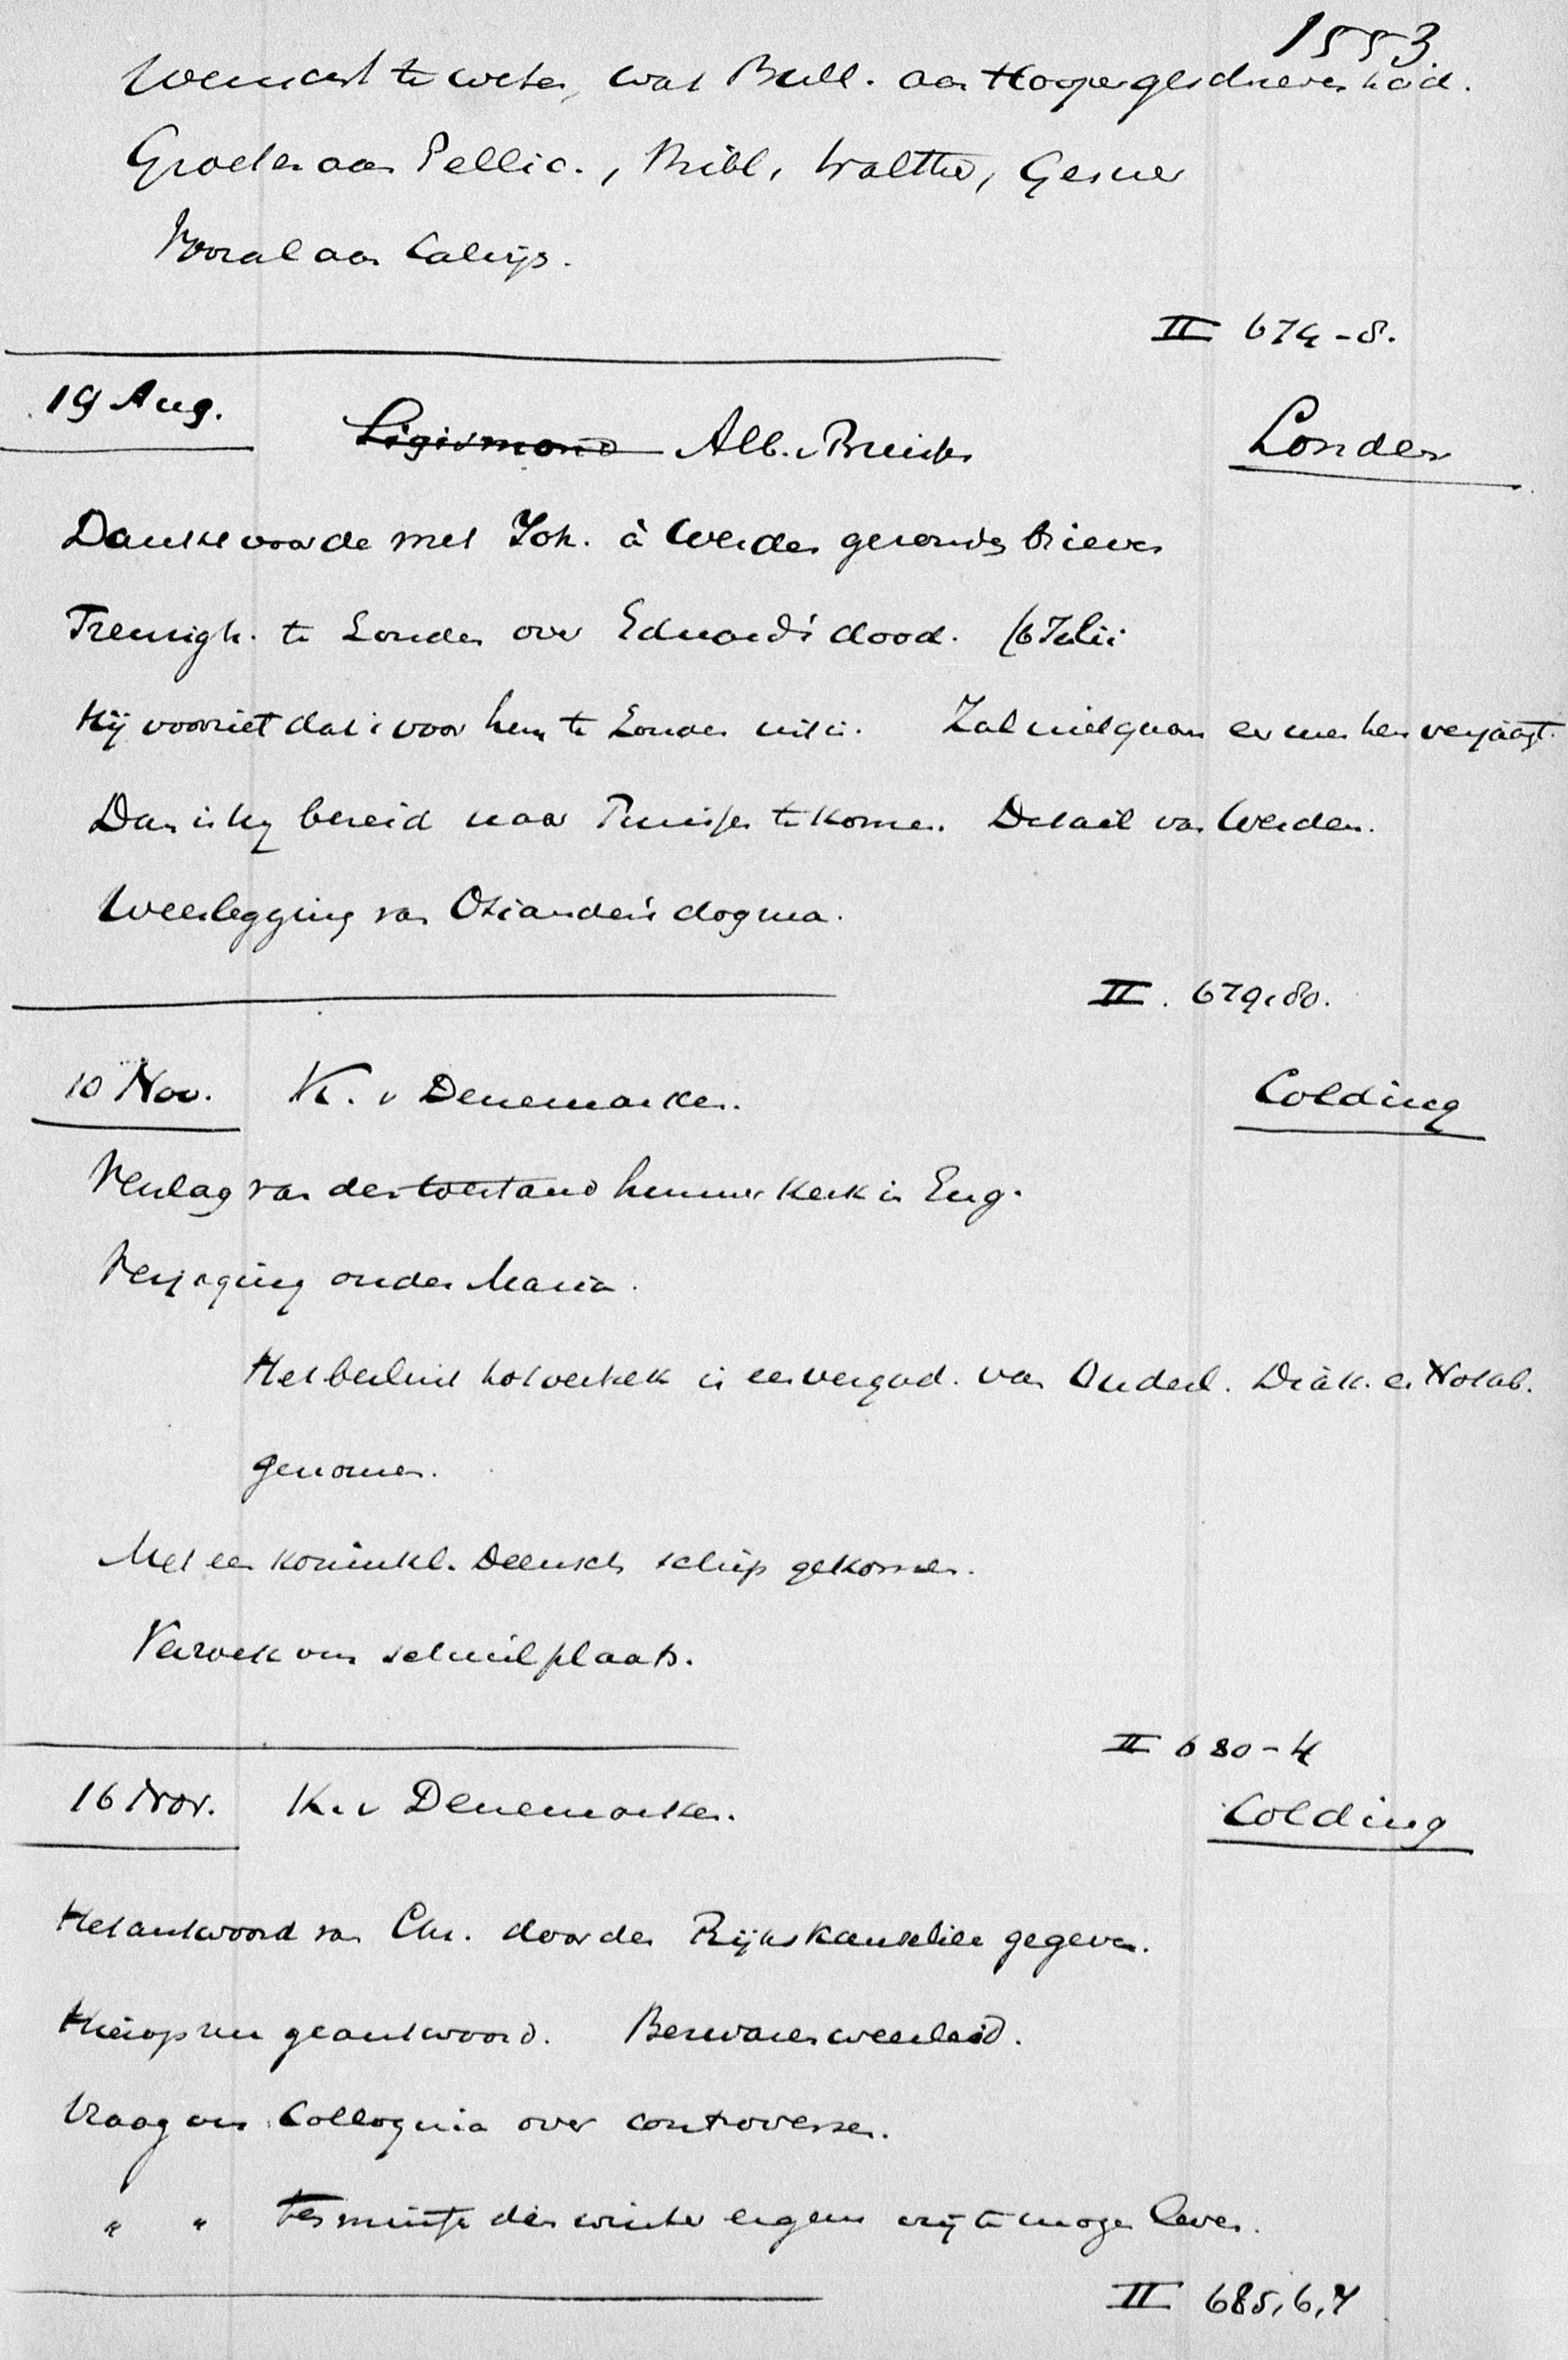 1553.
Wenscht te weten, wat Bull. aan Hooper geschreven had.
Groeten aan Pellic., Bibl, Walther, Gesner
Vooral aan Calvijn.
II 674-8.
19 Aug. Sigismond Alb. v Pruisen Londen
Dankt voor de met Joh. à Werden gezonden brieven
Treurigh. te Londen over Eduard's dood. (6 Julii
Hij voorziet dat 't voor hem te Londen uit is. Zal niet gaan eer men hem verjaagt.
Dan is hij bereid naar Pruisen te komen. Detail van Werden.
Weerlegging van Osiander's dogma.
II. 679,80.
10 Nov. K. v Denemarken. Colding
Verslag van den toestand hunner Kerk in Eng.
Verjaging onder Maria.
Het besluit tot vertrek is in vergad. van Ouderl. Diak. en Notab.
genomen.
Met een koninkl. Deensch schip gekomen.
Verzoek om schuilplaats.
II 680-4
16 Nov. K. v Denemarken. Colding
Het antwoord van Chr. door den Rijkskanselier gegeven.
Hierop nu geantwoord. Bezwaren weerlegd.
Vraag om Colloquia over controversen.
" " ten minste den winter ergens vrij te mogen leven.
II 685,6,7